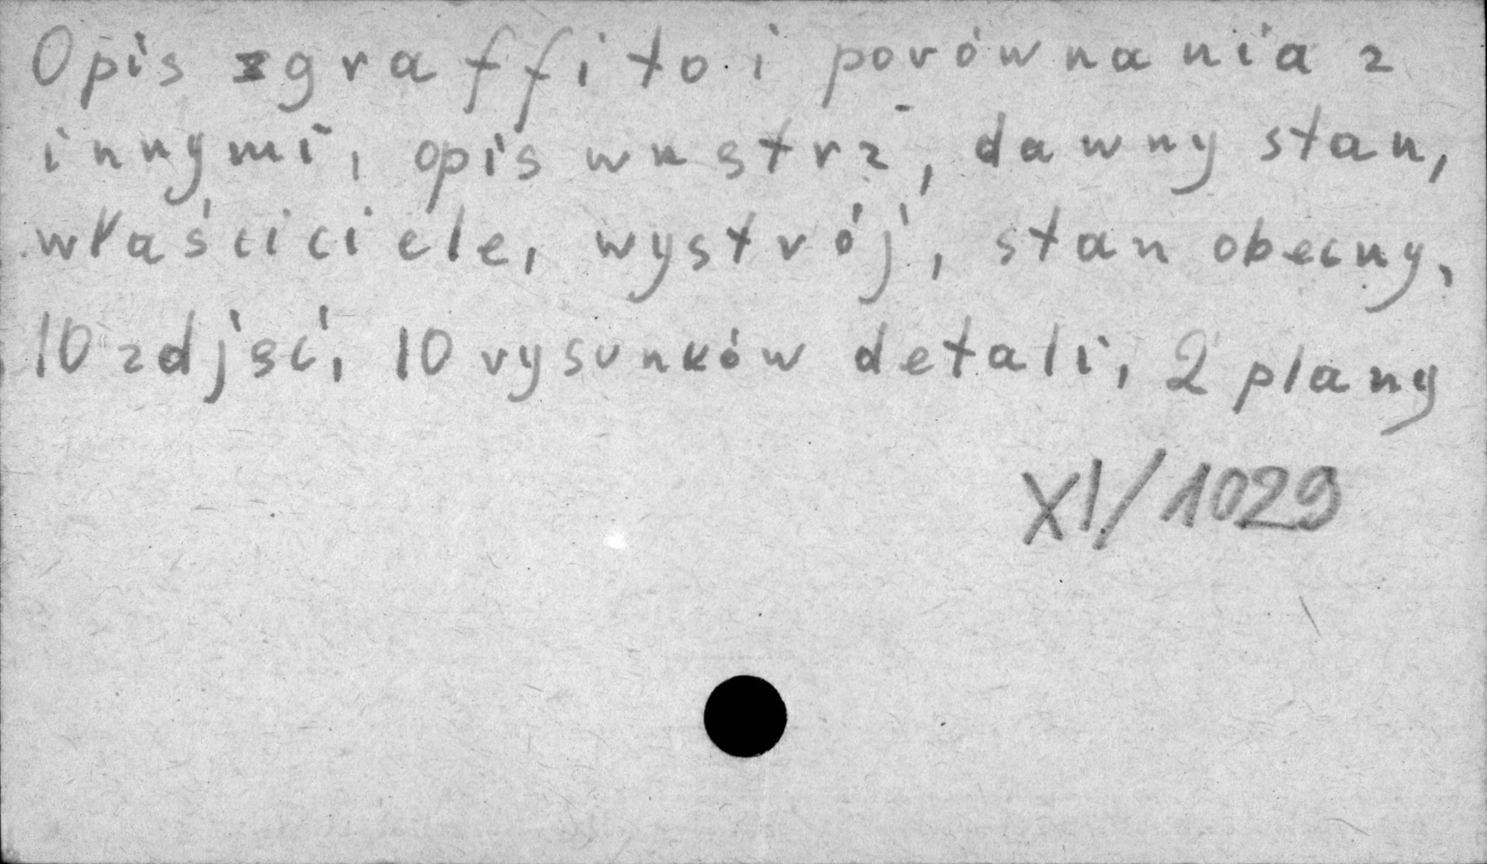 Opis sgraffito i porównania z
innymi, opis wnętrz, dawny stan,
właściciele, wystrój, stan obecny,
10 zdjęć, 10 rysunków detali, 2 plany
XI/1029